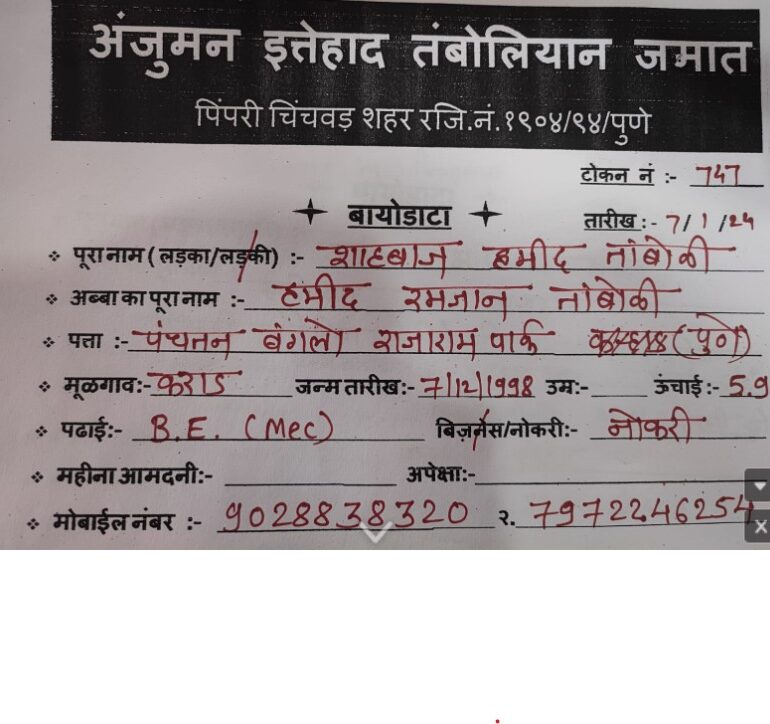 अंजुमन इत्तेहाद तंबोलियान जमात
पिंपरी चिंचवड़ शहर रजि.नं.१९०४/९४/पुणे
टोकन नं :- 747
बायोडाटा
तारीख :- 7/1/24
पूरा नाम ( लड़का/लड़की) :- शाहबाज हमीद तांबोळी
अब्बा का पूरा नाम :- हमीद रमजान तांबोळी
पत्ता :- पंचतन बंगलो राजाराम पार्क (पुणे)
मूळगाव:- कराड जन्म तारीख:- 7/12/1998 उम्र:- ऊंचाई :- 5.9
पढाई:- B.E. (Mec) बिज़नेस/नोकरी:- नोकरी
महीना आमदनी:- अपेक्षा:-
मोबाईल नंबर :- 9028838320 २. 7972246254